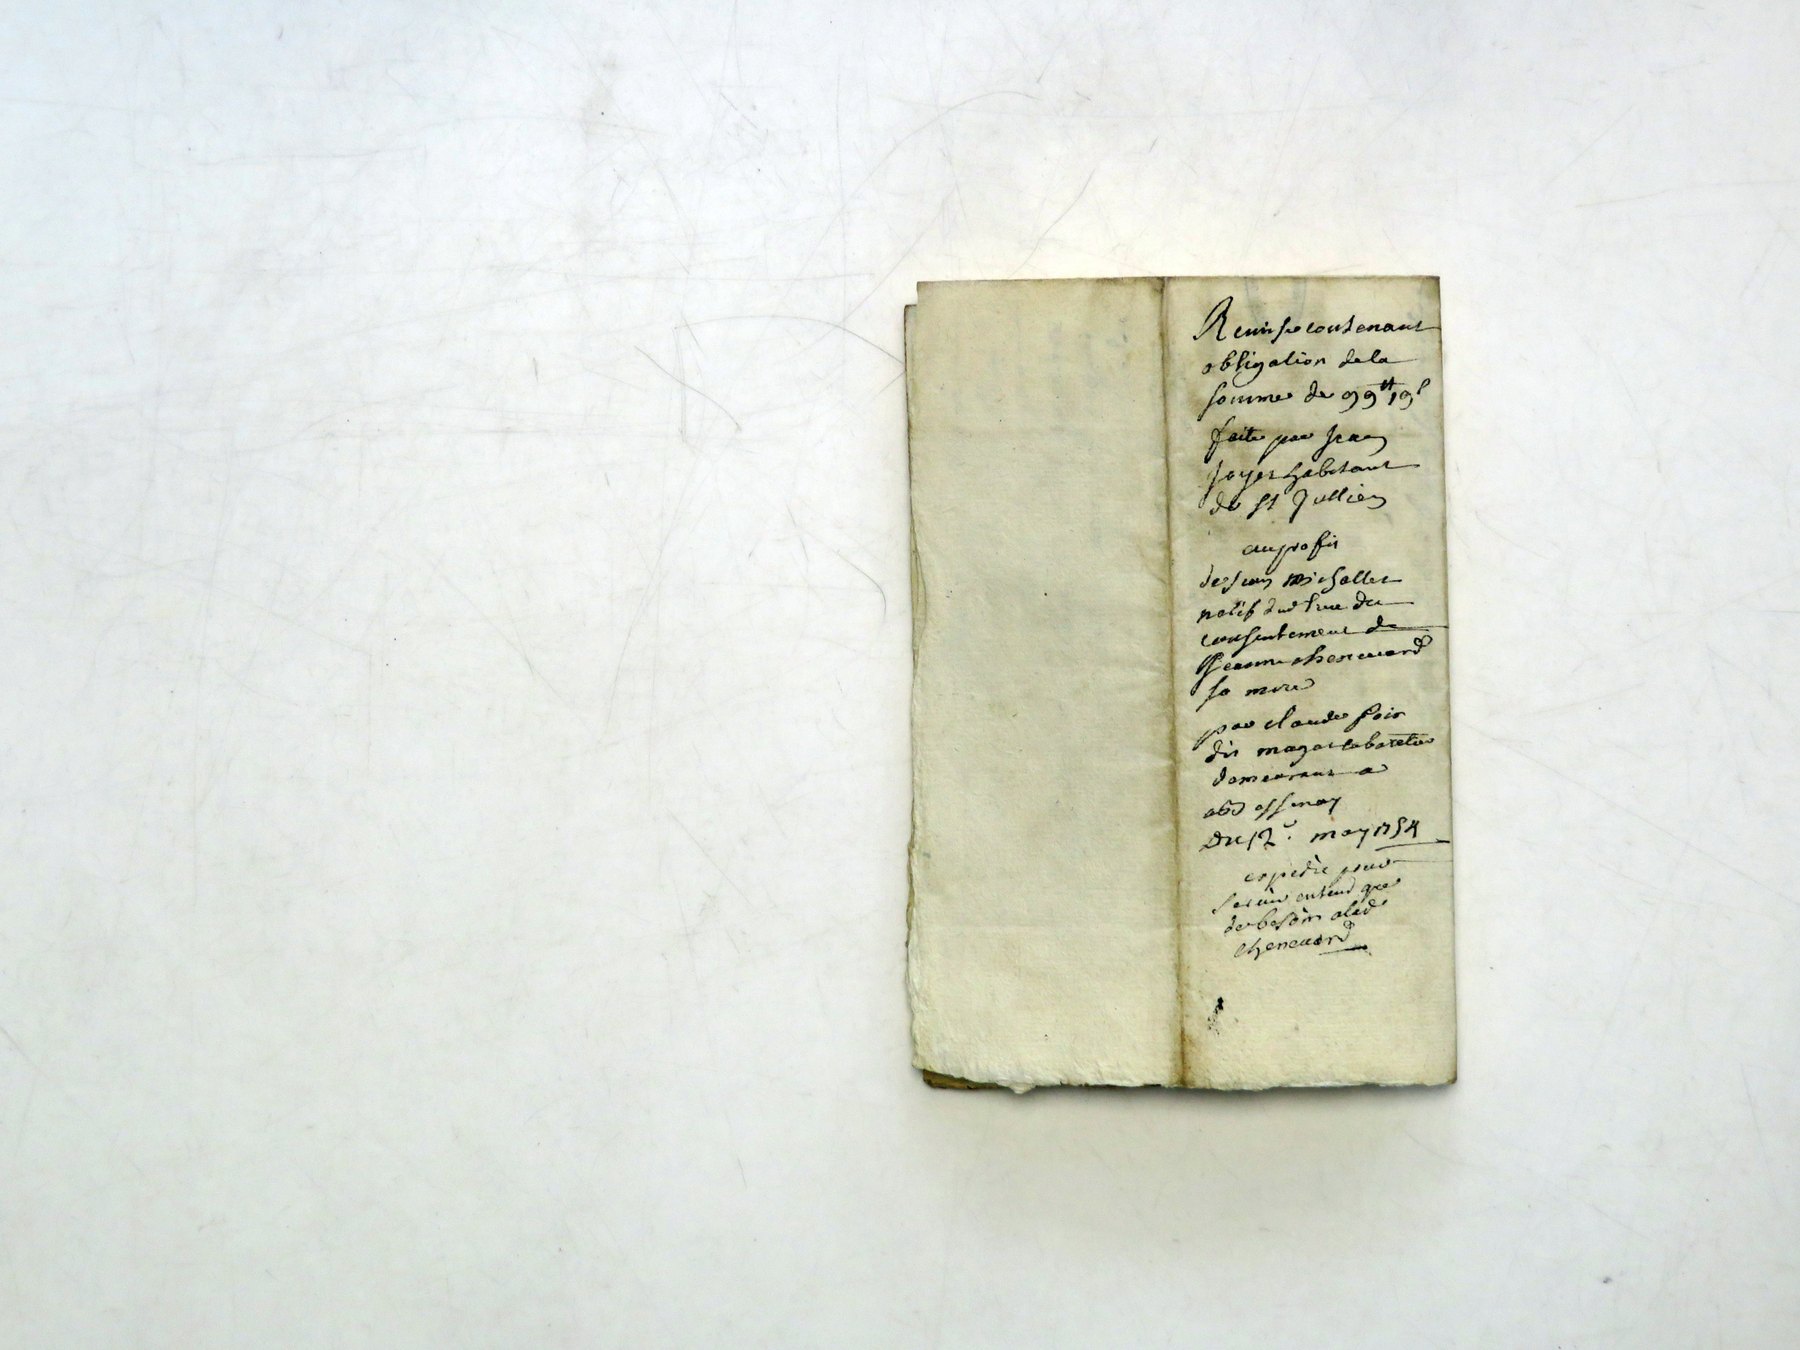 Remise contenant
obligation de la
somme de 99ᵗᵗ 19ˢ
faite par Jean
Joyet habitant
de St Jullien
au profit
de Jean Michallet
natif dud lieu du
consentement de
Jeanne chenevard
sa mere
par claude
dit cabaretier
demeurant a
Du 12ᵉ may 1754
expedie pour
servir entend que
de besoin alad
chenevard